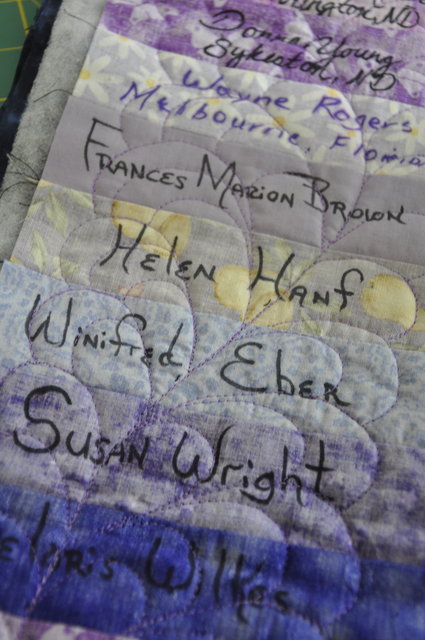 Donna Young
Sykeston, ND
Wayne Rogers
Melbourne, Florida
Frances Marion Brown
Helen Hanf
Winifred Eber
Susan Wright
Wilkes